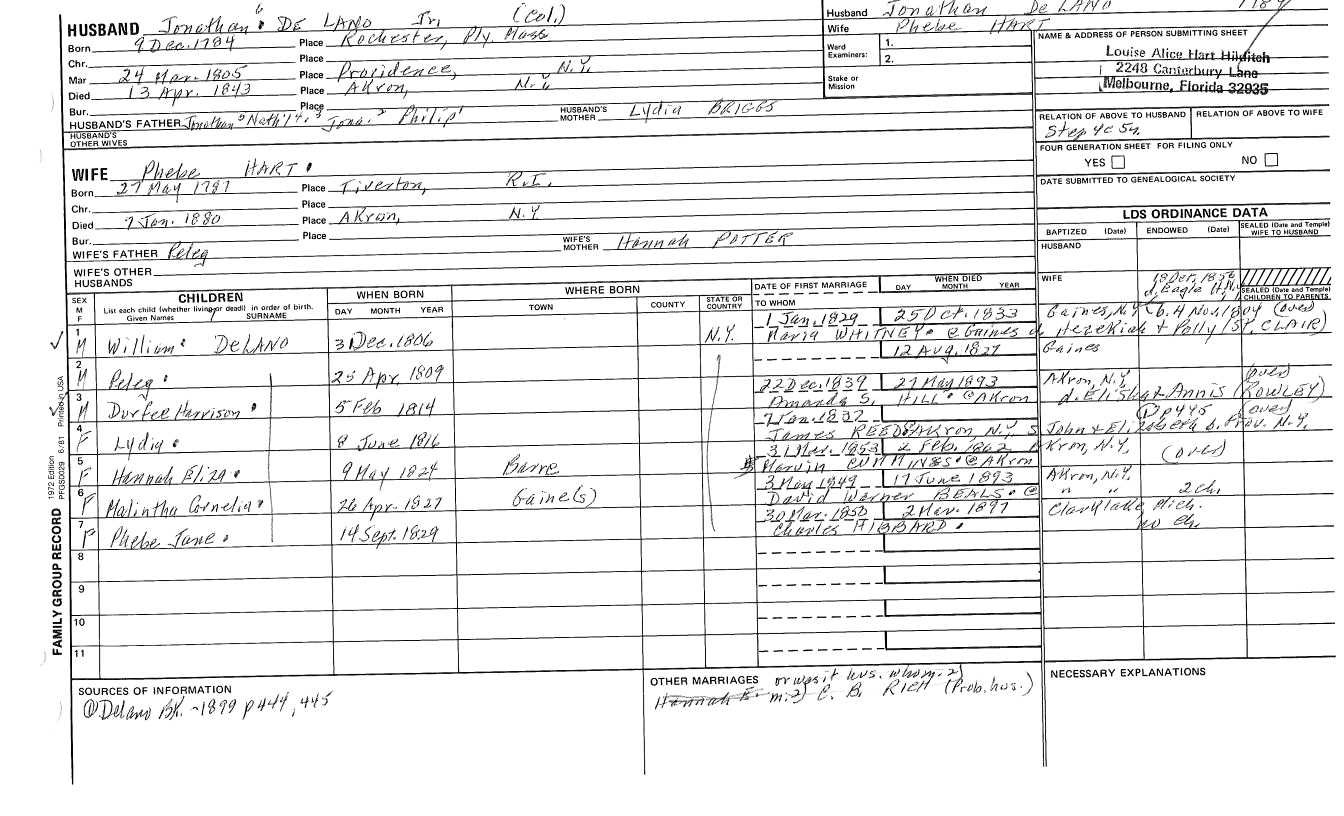 HUSBAND Jonathan⁶ DE LANO Jr. (Col.)
Husband Jonathan De LANO
Wife Phebe HART
Born 9 Dec. 1784 Place Rochester, Ply. Mass
Chr. Place
Mar 24 Mar. 1805 Place Providence, N.Y.
Died 13 Apr. 1843 Place Akron, N.Y.
Bur. Place
Ward Examiners: 1. 2.
Stake or Mission
NAME & ADDRESS OF PERSON SUBMITTING SHEET
Louise Alice Hart Hilditch
2248 Canterbury Lane
Melbourne, Florida 32935
HUSBAND'S FATHER Jonathan⁵ Nath'l⁴, ³ Jona.² Philip¹ HUSBAND'S MOTHER Lydia BRIGGS
HUSBAND'S OTHER WIVES
RELATION OF ABOVE TO HUSBAND RELATION OF ABOVE TO WIFE
FOUR GENERATION SHEET FOR FILING ONLY
YES NO
DATE SUBMITTED TO GENEALOGICAL SOCIETY
WIFE Phebe HART
Born 27 May 1787 Place Tiverton, R.I.
Chr. Place
Died 7 Jan. 1880 Place Akron, N.Y
Bur. Place
WIFE'S FATHER Peleg WIFE'S MOTHER Hannah POTTER
WIFE'S OTHER HUSBANDS
LDS ORDINANCE DATA
BAPTIZED (Date) ENDOWED (Date) SEALED (Date and Temple) WIFE TO HUSBAND
HUSBAND
WIFE
SEALED (Date and Temple) CHILDREN TO PARENTS
SEX M F CHILDREN List each child (whether living or dead) in order of birth. Given Names SURNAME
WHEN BORN DAY MONTH YEAR
WHERE BORN TOWN COUNTY STATE OR COUNTRY
DATE OF FIRST MARRIAGE TO WHOM
WHEN DIED DAY MONTH YEAR
1 M William DeLANO 31 Dec. 1806 N.Y. 1 Jan. 1829 25 Oct. 1833 Gaines, N.Y. (over)
Maria WHITNEY @ Gaines d Hezekiah & Polly (ST. CLAIR)
2 M Peleg 25 Apr. 1809 12 Aug. 1827 Gaines
3 M Durfee Harrison 5 Feb 1814 22 Dec. 1839 27 May 1893 Akron, N.Y. (over)
Amanda S. HILL @ Akron d. Elisha & Annis (ROWLEY)
4 F Lydia 8 June 1816 7 Jan. 1832 p 445 (over)
James REED @ Akron N.Y. S John & Elizabeth b. Prov. N.Y.
5 F Hannah Eliza 9 May 1824 Barre 31 Mar. 1853 2 Feb. 1862 Akron, N.Y. (over)
Marvin CUMMINGS @ Akron
6 F Malintha Cornelia 26 Apr. 1827 Gaine(s) 3 May 1849 17 June 1893 Akron, N.Y.
David Warner BEALS @ " " 2 ch.
7 F Phebe Jane 14 Sept. 1829 30 Mar. 1850 2 Mar. 1897 Clark lake, Mich.
Charles HIBBARD no ch.
8
9
10
11
FAMILY GROUP RECORD 1972 Edition PFGS0029 6/81 Printed in USA
SOURCES OF INFORMATION
@ Delano Bk. - 1899 p 444, 445
OTHER MARRIAGES or was it hus. who m. 2)
Hannah E. m. 2) C. B. RICH (Prob. hus.)
NECESSARY EXPLANATIONS